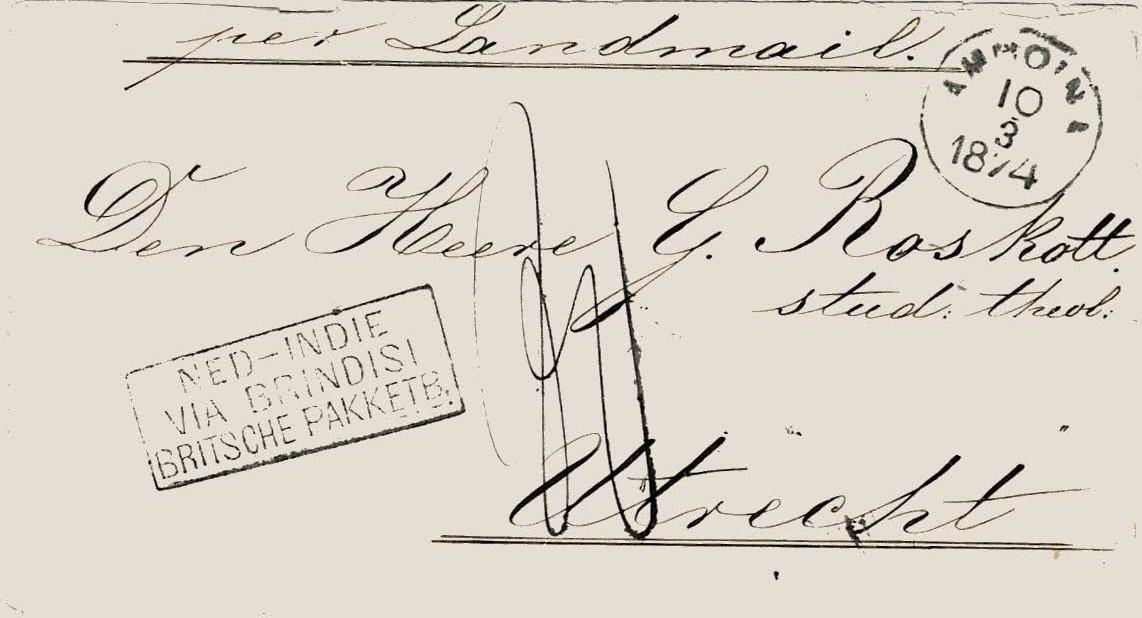 per Landmail.
AMBOINA
10
3
1874
Den Heere G. Roskott.
stud: theol:
NED-INDIE
VIA BRINDISI
BRITSCHE PAKKETB.
Utrecht